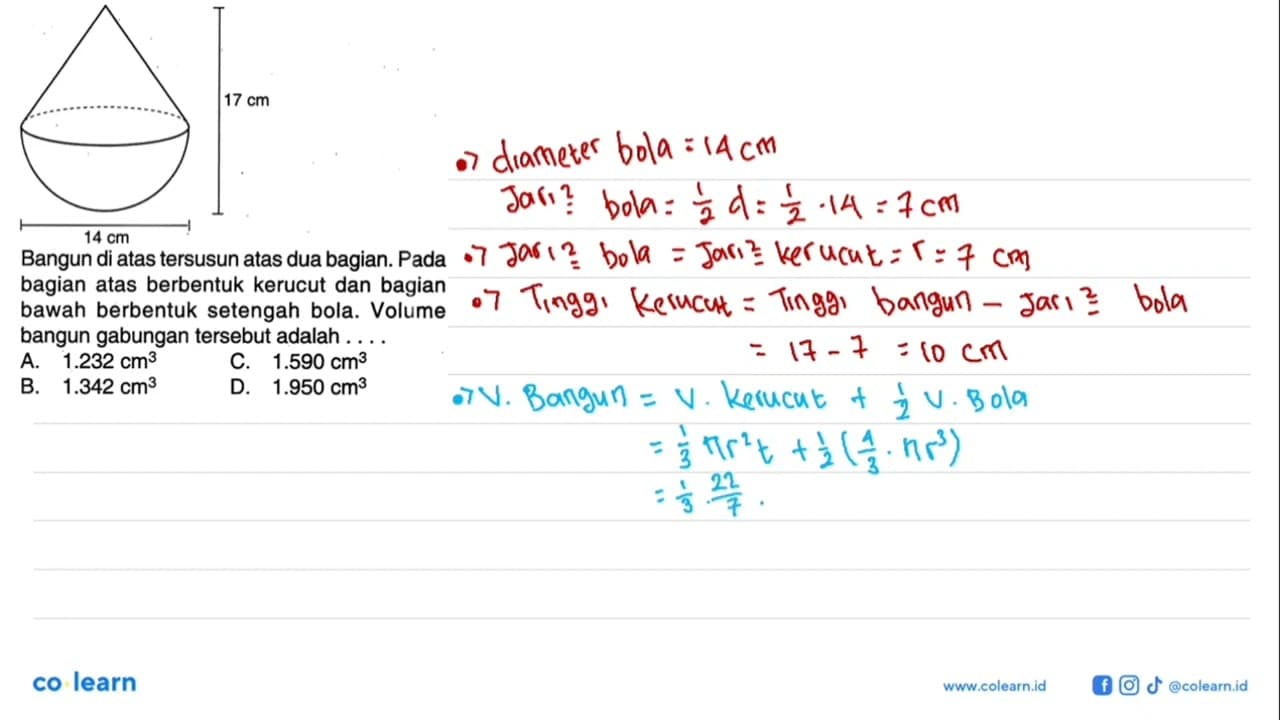 17 cm
14 cm
Bangun di atas tersusun atas dua bagian. Pada
bagian atas berbentuk kerucut dan bagian
bawah berbentuk setengah bola. Volume
bangun gabungan tersebut adalah . . . .
A. 1.232 cm³ C. 1.590 cm³
B. 1.342 cm³ D. 1.950 cm³
•> diameter bola = 14 cm
Jari² bola = 1/2 d = 1/2 · 14 = 7 cm
•> Jari² bola = Jari² kerucut = r = 7 cm
•> Tinggi kerucut = Tinggi bangun - Jari² bola
= 17 - 7 = 10 cm
•> V. Bangun = V. kerucut + 1/2 V. Bola
= 1/3 πr²t + 1/2 (4/3 · πr³)
= 1/3 · 22/7 ·
co learn
www.colearn.id @colearn.id